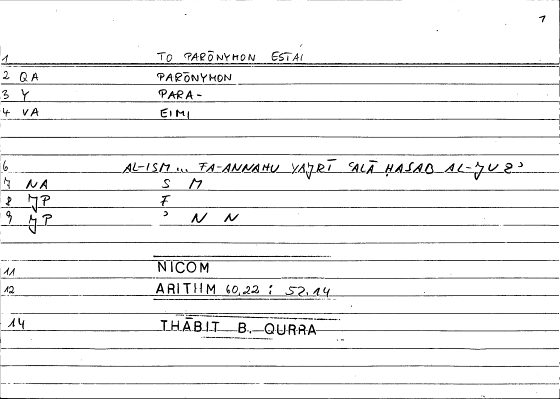 1
1 TO PARŌNYMON ESTAI
2 QA PARŌNYMON
3 Y PARA-
4 VA EIMI
6 AL-ISM ... FA-ANNAHU YAǦRĪ ʿALĀ ḤASAB AL-ǦUZʾ
7 NA S M
8 ǦP F
9 ǦP ʾ N N
11 NICOM
12 ARITHM 60,22 : 52,14
14 THĀBIT B. QURRA